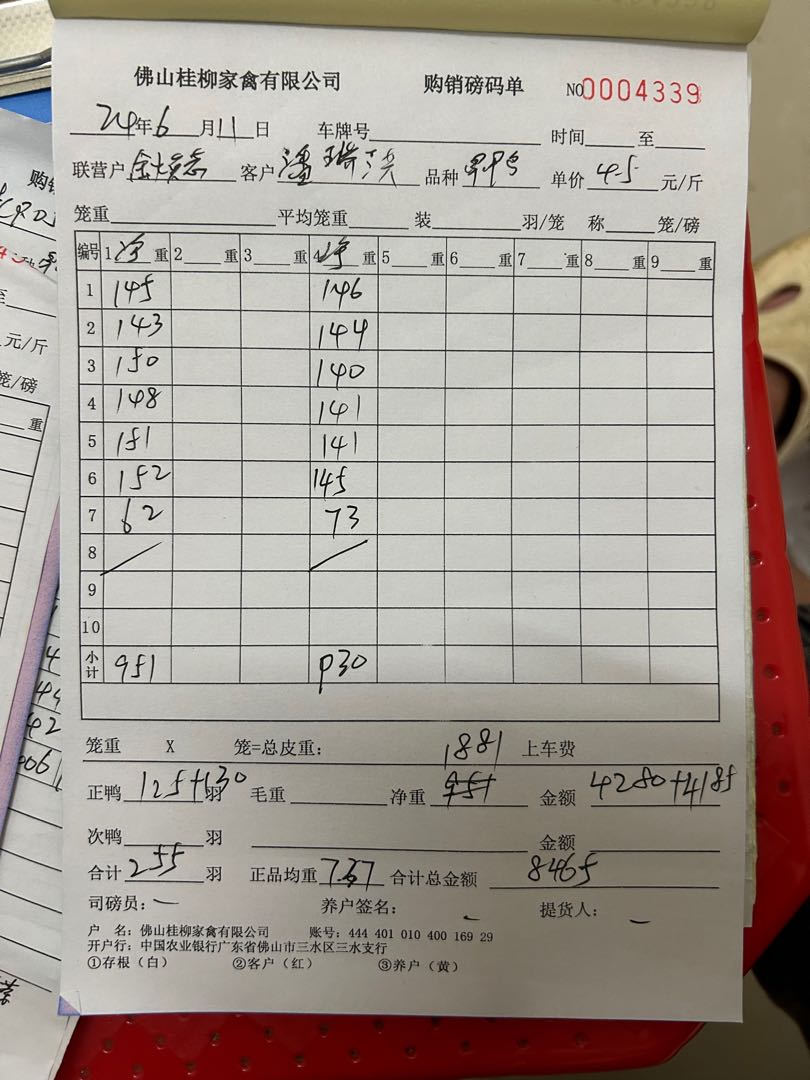 佛山桂柳家禽有限公司 购销磅码单 NO0004339
24年6月11日 车牌号 时间 至
联营户 客户 潘 品种 单价 4.5 元/斤
笼重 平均笼重 装 羽/笼 称 笼/磅
编号 1净重 2 重 3 重 4净重 5 重 6 重 7 重 8 重 9 重
1 145 146
2 143 144
3 150 140
4 148 141
5 151 141
6 152 145
7 62 73
8
9
10
小计 951 930
笼重 X 笼=总皮重: 1881 上车费
正鸭 125+130 羽 毛重 净重 951 金额 4280+4185
次鸭 羽 金额
合计 255 羽 正品均重 7.37 合计总金额 8465
司磅员: 养户签名: 提货人:
户 名: 佛山桂柳家禽有限公司 账号: 444 401 010 400 169 29
开户行: 中国农业银行广东省佛山市三水区三水支行
①存根(白) ②客户(红) ③养户(黄)
购销
元/斤
笼/磅
重